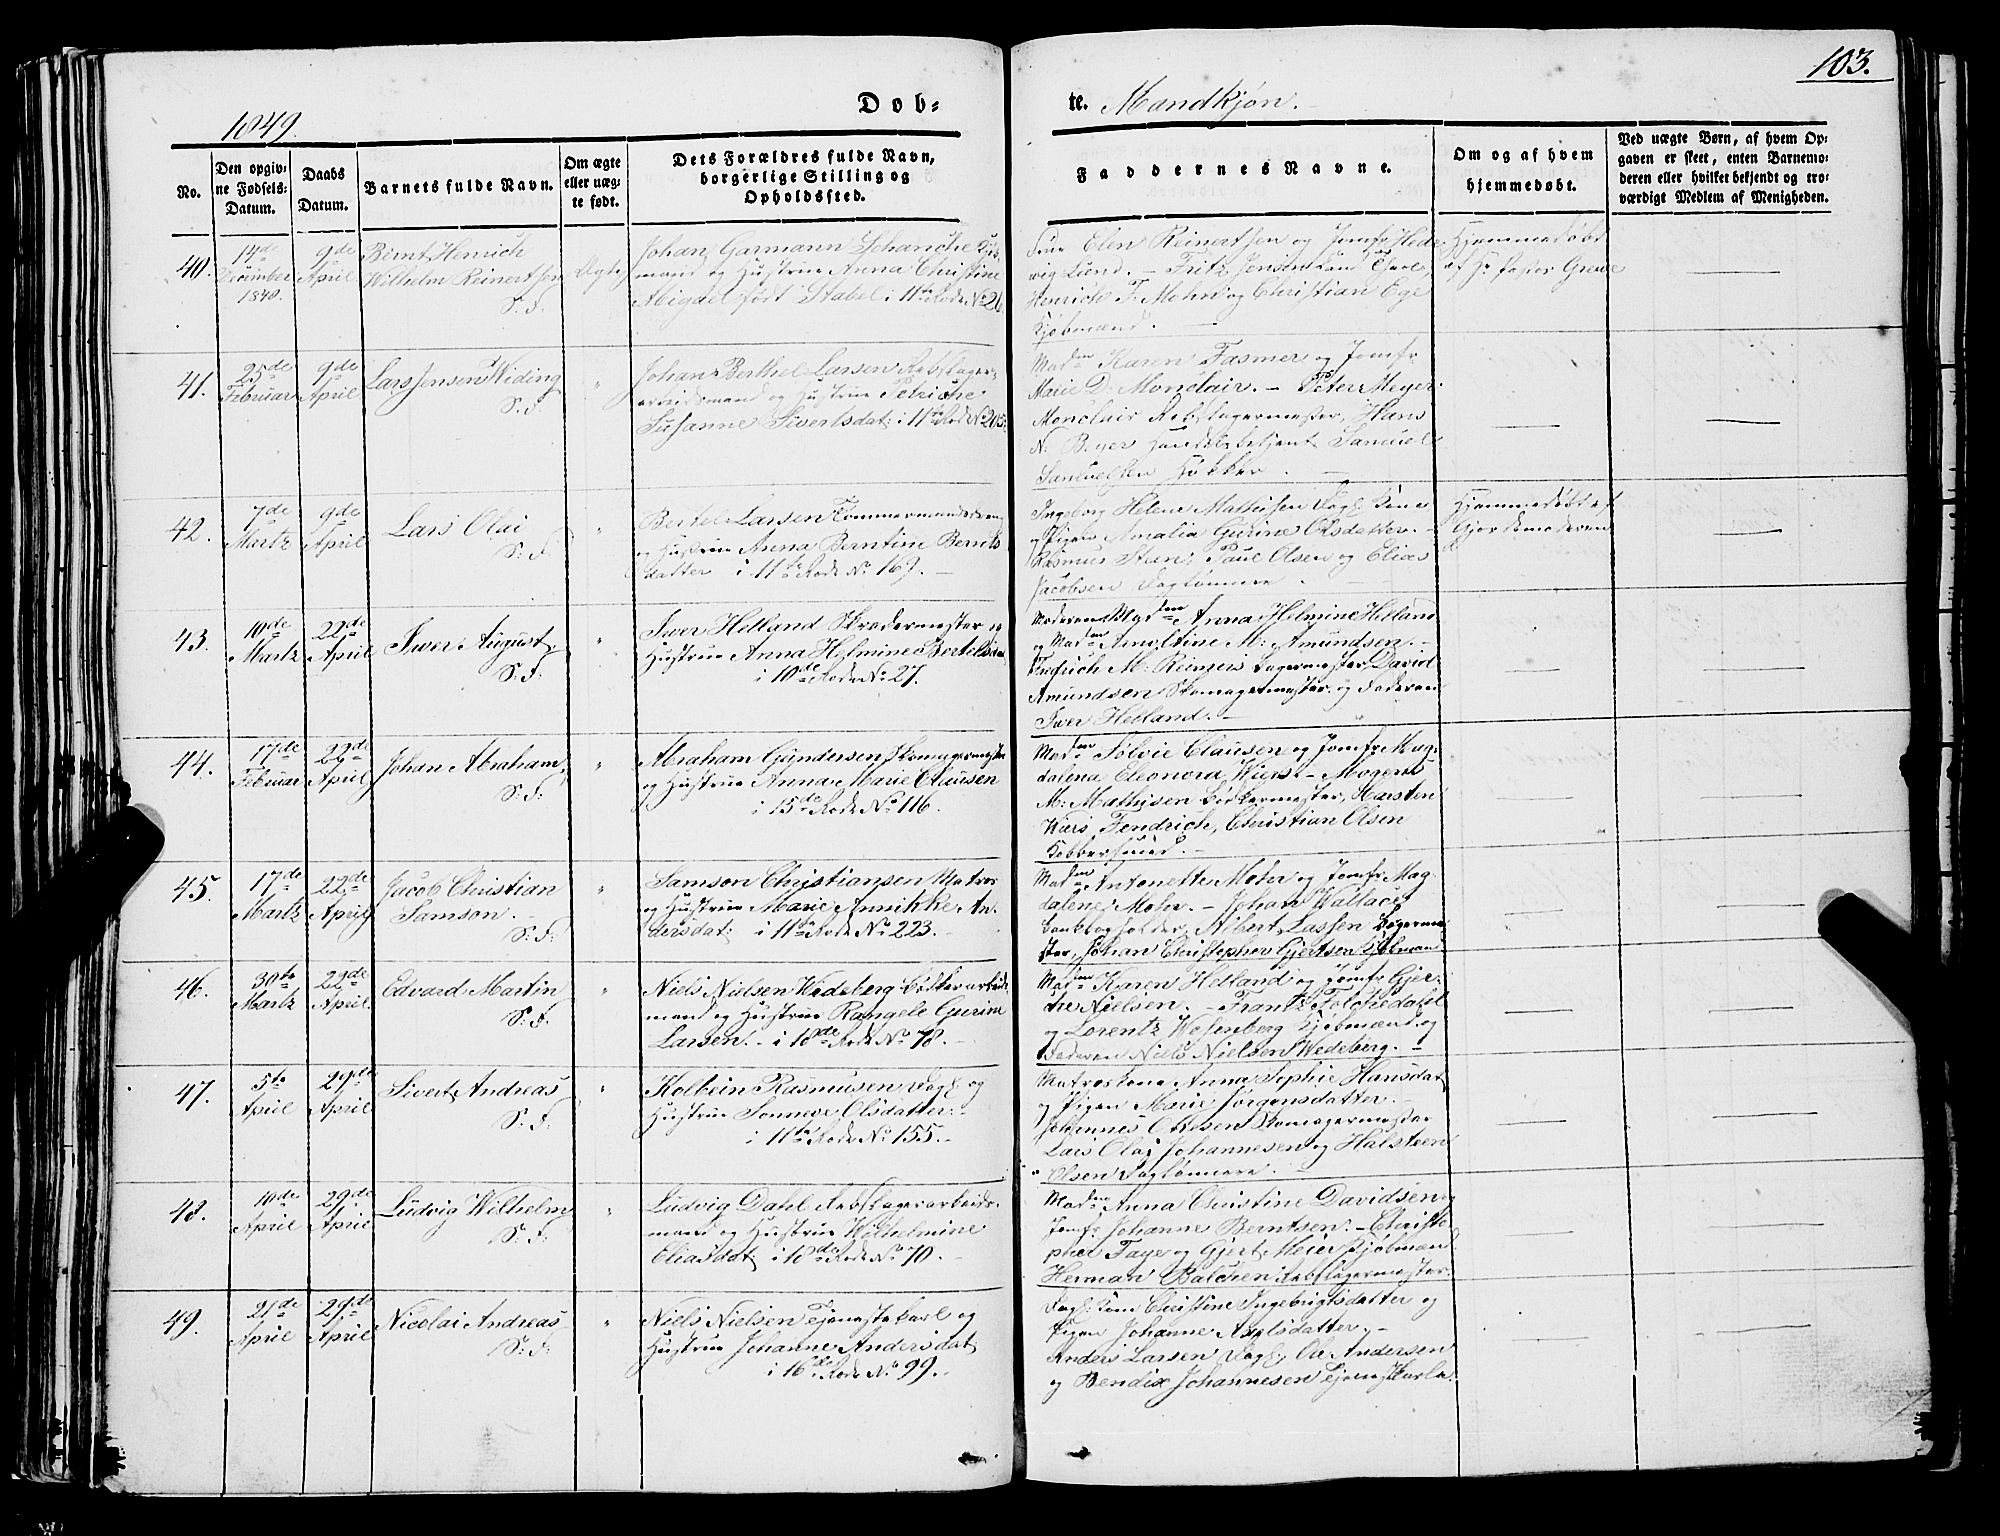 103.
1849.
Dob-
te. Mandkjøn.
No.
Den opgiv-
ne Fødsels-
Datum.
Daabs
Datum.
Barnets fulde Navn.
Om ægte
eller uæg-
te født.
Dets Forældres fulde Navn,
borgerlige Stilling og
Opholdssted.
Faddernes Navne.
Om og af hvem
hjemmedøbt.
Ved uægte Børn, af hvem Op-
gaven er skeet, enten Barnemo-
deren eller hvilket bekjendt og tro-
værdigt Medlem af Menigheden.
40.
14de
December
1848.
9de
April
Bernt Henrich
Wilhelm Reinertsen
S. F.
Ægte
Johan Garmann
mand og Hustrue Anna Christine
Abigael født Stabel i 11te Rode No 20
Elen Reinertsen og Jomfr Hed-
wig Lund. – Fritz Jensen
Henrich F. Mohn og Christian Ege
Kjøbmænd. –
Hjemmedøbt
af Hr Pastor Greve
41.
25de
Februar
9de
April
Lars Jensen Widing
S. F.
"
Johan Berthel Larsen Rebslager-
arbeidsmand og Hustrue Petriche
Susanne Sivertsdat: i 11te Rode No 205.
Madm Karen Fasmer og Jomfr
Marie D. Monclair. – Peter Meyer
Monclair Rebslagermester, Hans
N. Beyer Handelsbetjent Samuel
Samuelsen Høkker. –
42.
7de
Martz
9de
April
Lars Olai
S. F.
"
Berte Larsen Tømmermandsdreng
og Hustrue Anna Berntine Bernts
datter i 11te Rode No 169. –
Ingeborg Helene Mathisen Dagl: Kone
og Pigen Amalia Gurine Olsdatter. –
Rasmus Steen, Paul Olsen og Elias
Jacobsen Daglønnere. –
Hjemmedøbt af
Gjordemoderen
43.
10de
Martz
22de
April
Iver August
S: F:
"
Iver Helland Skredermester og
Hustrue Anna Helmine Bertelsen
i 10de Rode No 27.
Moderen Madm Anna Helmine Helland
og Madm Arnoldine M: Amundsen. –
Fredrich M: Reimers Bagermester, David
Amundsen Skomagermester og Faderen
Iver Helland. –
44.
17de
Februar
22de
April
Johan Abraham
S: F:
"
Abraham Gundersen Skomagermester
og Hustrue Anna Marie Clausen
i 15de Rode No 116.
Madm Sølvie Clausen og Jomfr: Mag-
dalena Eleonora Wiers – Mogens
M: Mathisen Bødkermester, Karsten
Wiers Fendrich, Christian Olsen
Kobbersmed. –
45.
17de
Martz
22de
April
Jacob Christian
Samson. –
S: F:
"
Samson Christiansen Matros
og Hustrue Marie Annikke An-
dersdat: i 11te Rode No 223. –
Madm Antonette Mohr og Jomfr Mag-
dalene Mohr. – Johan Wallace
Bankbogholder, Albert Lassen Bagerme-
ster, Johan Christopher Gjertsen Kjøbman
46.
30te
Martz
22de
April
Edvard Martin
S: F:
"
Niels Nielsen Wedeberg Bødkerarbeids-
mand og Hustrue Rangele Gurine
Larsen. – i 18de Rode No 78. –
Madm Karen Helland og Jomfr Gjer-
che Nielsen. – Frantz Folchedahl
og Lorentz Wesenberg Kjøbmænd og
Faderen Niels Nielsen Wedeberg. –
47.
5te
April
29de
April
Sivert Andreas
S: F:
"
Kolbein Rasmusen Dagl: og
Hustrue Sønneve Olsdatter. –
i 11te Rode No 155. –
Matroskone Anna Sophie Hansdat
og Pigen Marie Jørgensdatter. –
Johannes Ottesen Skomagermester
Lars Olai Johannesen og Halsteen
Olsen Daglønnere. –
48.
10de
April
29de
April
Ludvig Wilhelm
S: F:
"
Ludvig Dahl Rebslagerarbeids-
mand og Hustrue Wilhelmine
Eliasdat i 18de Rode No 70. –
Madm Anna Christine Davidsen og
Jomfr Johanne Berntsen. – Christo-
pher Faye og Gjert Meier Kjøbmænd
Herman Balchen Rebslagermester
49.
21de
April
29de
April
Nicolai Andreas
S: F:
"
Niels Nielsen Tjenestekarl og
Hustrue Johanne Andersdat
i 16de Rode No 99. –
Dagl: Kone Christine Ingebrigtsdatter og
Pigen Johanne Axelsdatter. –
Anders Larsen Dagl:, Ole Andersen
og Bendix Johannesen Tjenestkarle.